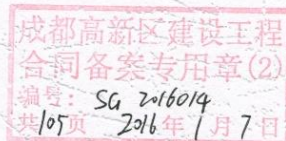 成都高新区建设工程
合同备案专用章(2)
编号: SG 2016014
共105页 2016年1月7日